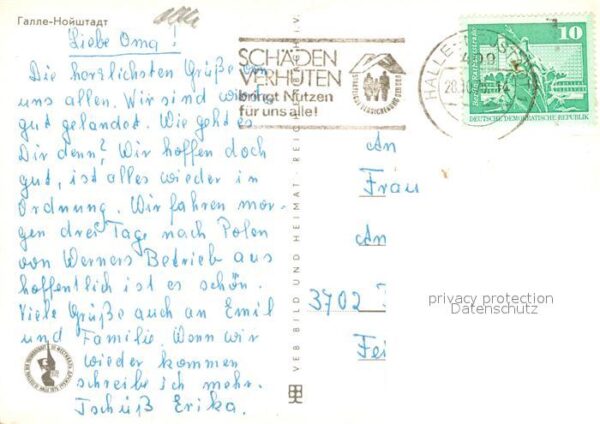 Галле-Нойштадт
Liebe Oma!
Die herzlichsten Grüße von
uns allen. Wir sind wieder
gut gelandet. Wie geht es
Dir denn? Wir hoffen doch
gut, ist alles wieder in
Ordnung. Wir fahren mor-
gen drei Tage nach Polen
von Werners Betrieb aus
hoffentlich ist es schön.
Viele Grüße auch an Emil
und Familie. Wenn wir
wieder kommen
schreibe ich mehr.
Tschüß Erika.
VEB BILD UND HEIMAT
SCHÄDEN
VERHÜTEN
bringt Nutzen
für uns alle!
HALLE
10
DEUTSCHE DEMOKRATISCHE REPUBLIK
An
Frau
An
3702
privacy protection
Datenschutz